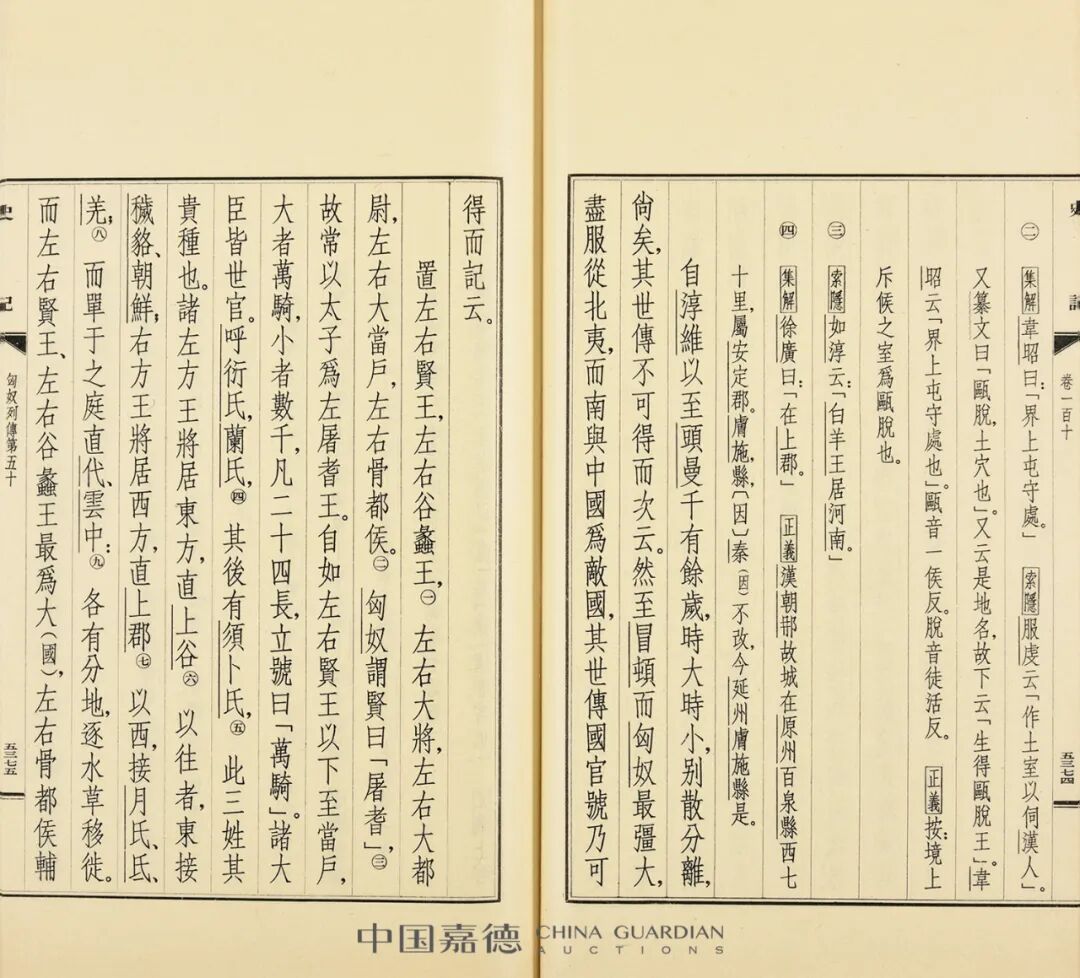 史記
卷一百十
五三七四
㊁ 集解韋昭曰:「界上屯守處。」 索隱服虔云「作土室以伺漢人」。
又纂文曰「甌脫,土穴也」。又云是地名,故下云「生得甌脫王」。韋
昭云「界上屯守處也」。甌音一侯反。脫音徒活反。 正義按:境上
斥候之室爲甌脫也。
㊂ 索隱如淳云:「白羊王居河南。」
㊃ 集解徐廣曰:「在上郡。」 正義漢朝𨙻故城在原州百泉縣西七
十里,屬安定郡。膚施,縣,〔因〕秦(因)不改,今延州膚施縣是。
自淳維以至頭曼千有餘歲,時大時小,別散分離,
尙矣,其世傳不可得而次云。然至冒頓而匈奴最彊大,
盡服從北夷,而南與中國爲敵國,其世傳國官號乃可
得而記云。
置左右賢王,左右谷蠡王,㊀ 左右大將,左右大都
尉,左右大當戶,左右骨都侯。㊁ 匈奴謂賢曰「屠耆」,㊂
故常以太子爲左屠耆王。自如左右賢王以下至當戶,
大者萬騎,小者數千,凡二十四長,立號曰「萬騎」。諸大
臣皆世官。呼衍氏,蘭氏,㊃ 其後有須卜氏,㊄ 此三姓其
貴種也。諸左方王將居東方,直上谷㊅ 以往者,東接
穢貉、朝鮮;右方王將居西方,直上郡㊆ 以西,接月氏、氐、
羌;㊇ 而單于之庭直代、雲中:㊈ 各有分地,逐水草移徙。
而左右賢王、左右谷蠡王最爲大(國),左右骨都侯輔
史記
匈奴列傳第五十
五三七五
中国嘉德 CHINA GUARDIAN
AUCTIONS